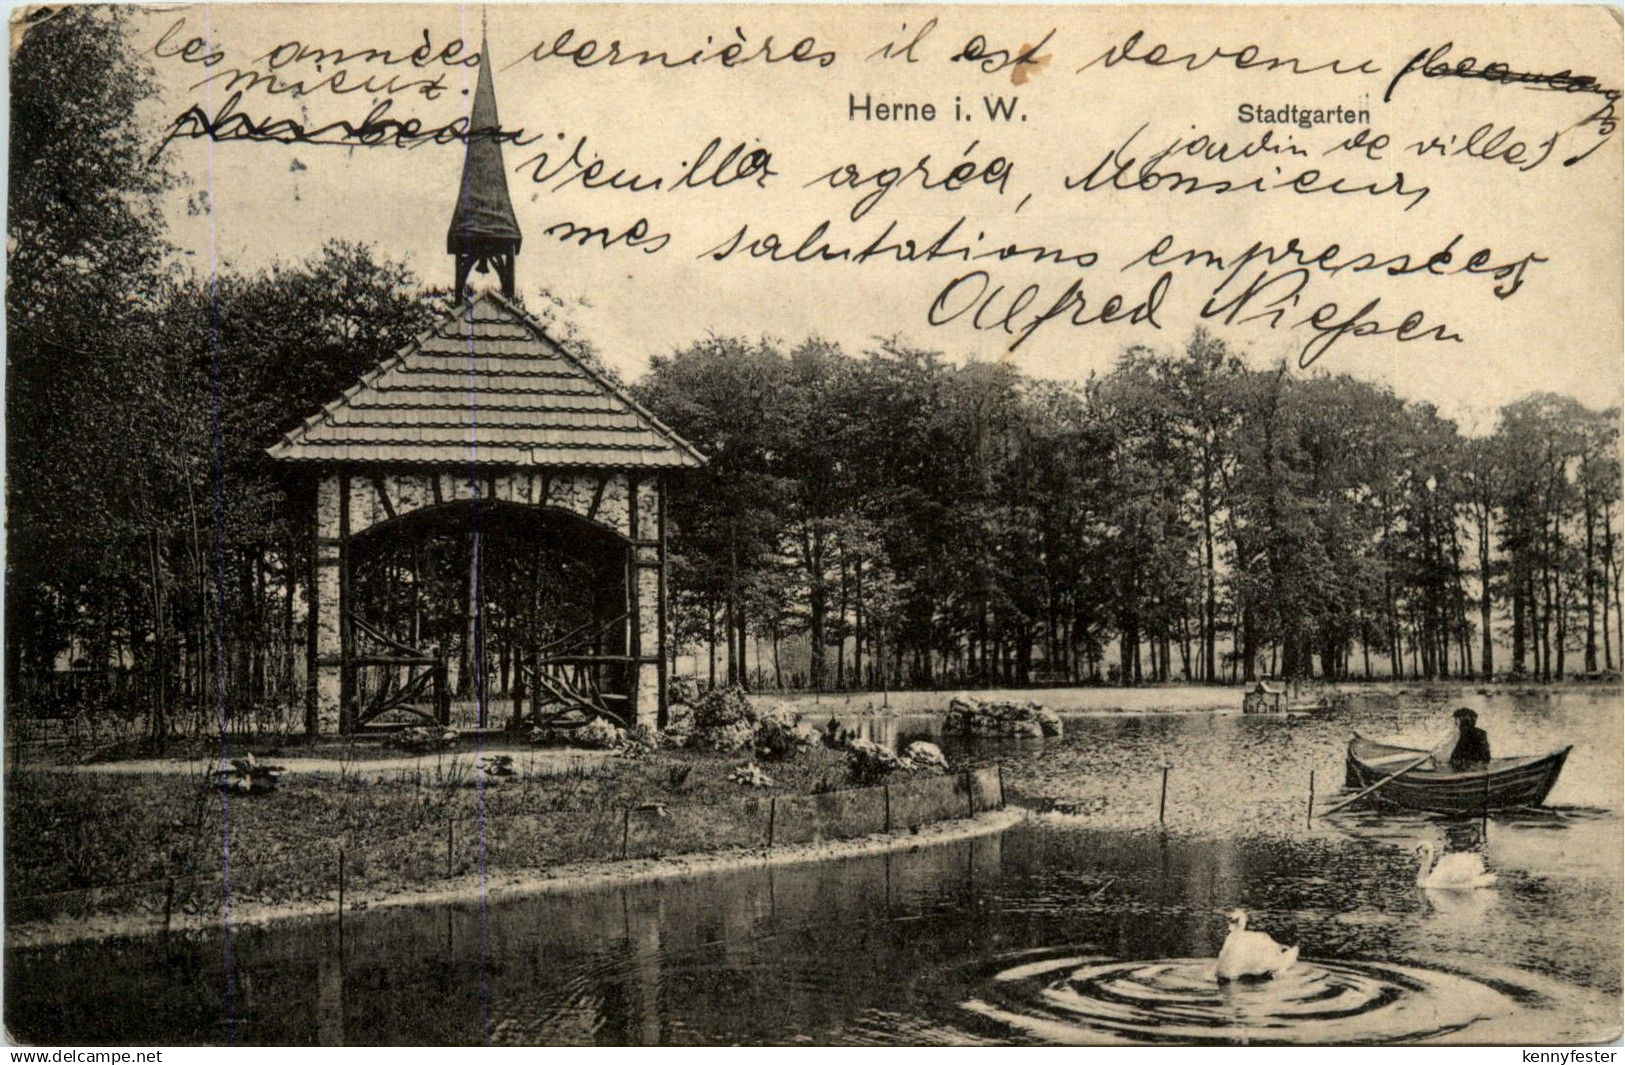 les années dernières il est devenu beaucoup
mieux.
plus beau.
Herne i. W.
Stadtgarten
(jardin de ville)
Veuillez agréer, Monsieur,
mes salutations empressées,
Alfred Nießen
www.delcampe.net
kennyfester